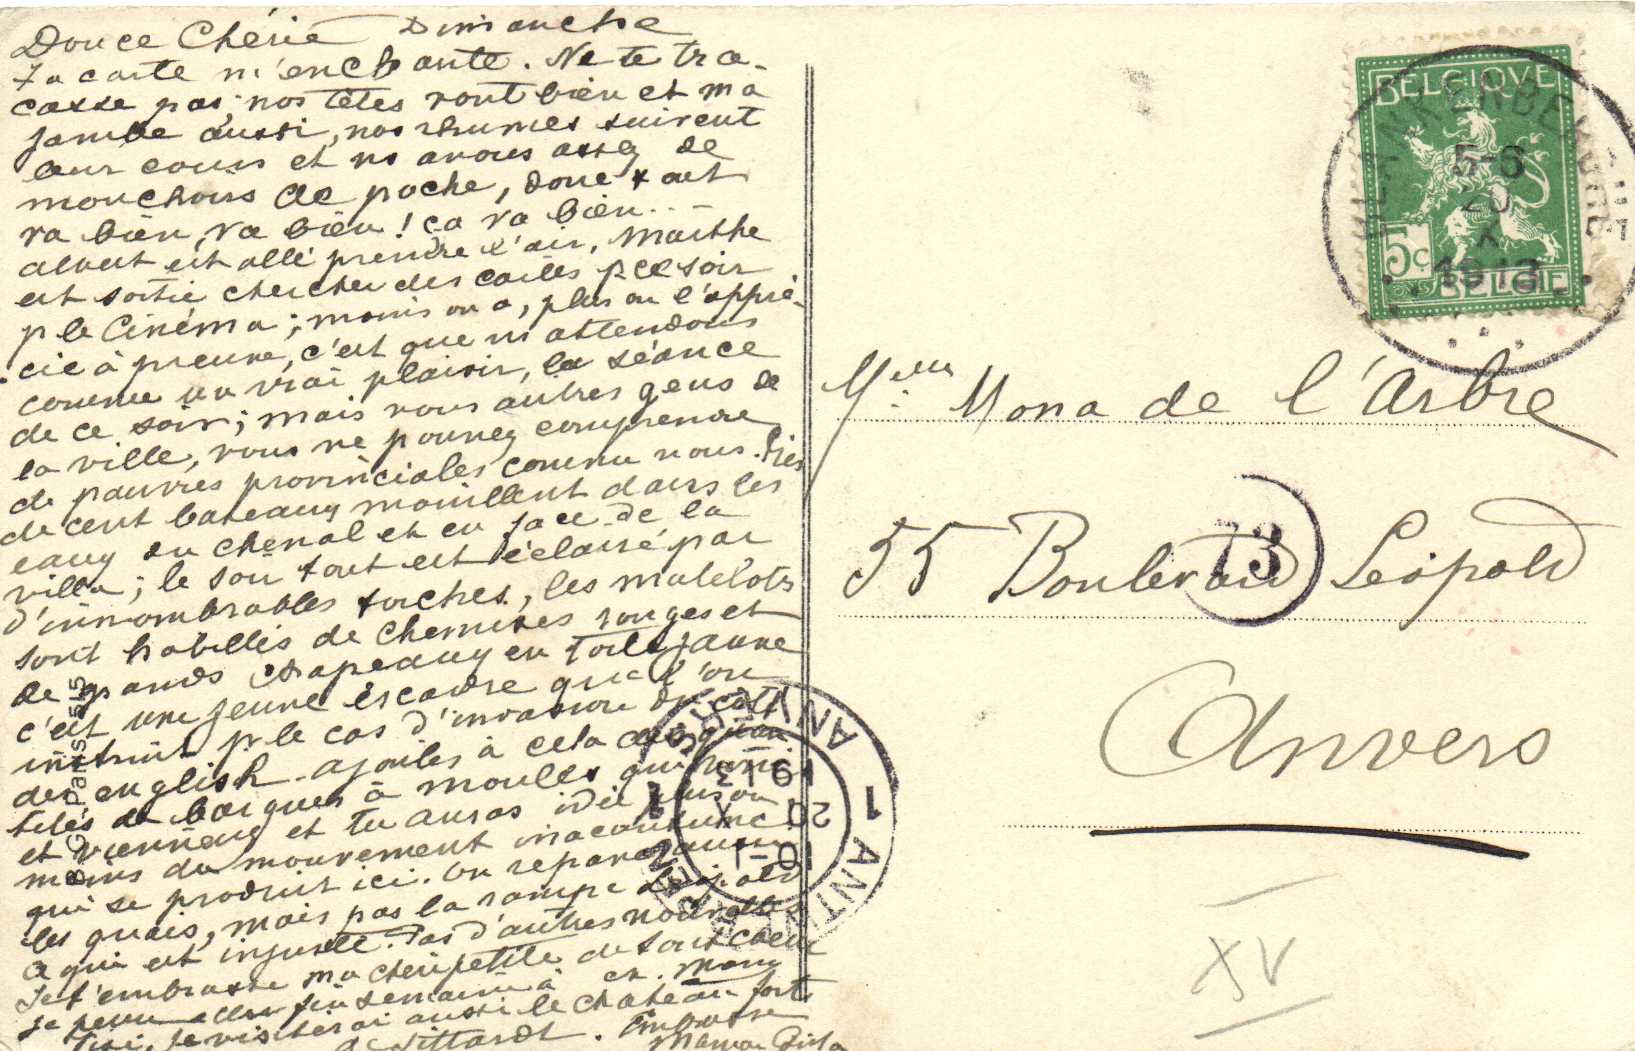 Douce Chérie Dimanche
Ta carte m'enchante. Ne te tra-
casse pas; nos têtes vont bien et ma
jambe aussi, nos rhumes suivent
leur cours et ns avons assez de
mouchoirs de poche, donc tout
va bien, va bien! ça va bien...
Albert est allé prendre l'air, Marthe
est sortie chercher des cartes p ce soir
p le Cinéma; moins on a, plus on l'appré-
cie à preuve, c'est que ns attendons
comme un vrai plaisir, la séance
de ce soir; mais vous autres gens de
la ville, vous ne pouvez comprendre
de pauvres provinciales comme nous. Près
de cent bateaux mouillent dans les
eaux du chenal et en face de la
villa; le soir tout est éclairé par
d'innombrables torches, les matelots
sont habillés de chemises rouges et
de grands chapeaux en toile jaune
c'est une jeune escadre que l'on
instruit p le cas d'invasion
des english. Ajoutes à cela
de barques à moules qui
et viennent et tu auras idée
moins du mouvement inaccoutumé
qui se produit ici. On répare
les quais, mais pas la rampe Léopold
ce qui est injuste. Pas d'autres nouvelles
Je t'embrasse ma chérie petite de tout coeur
je visiterai aussi le château fort
de Sittardt.
Maman
D.V.C. Paris 515
BELGIQUE
5c
BELGIË
BLANKENBERGHE
5-6
20
X
1913
Melle Mona de l'Arbre
55 Boulevard Léopold
73
Anvers
1 ANTWERPEN 1
ANVERS
10-11
20 X
1913
XV